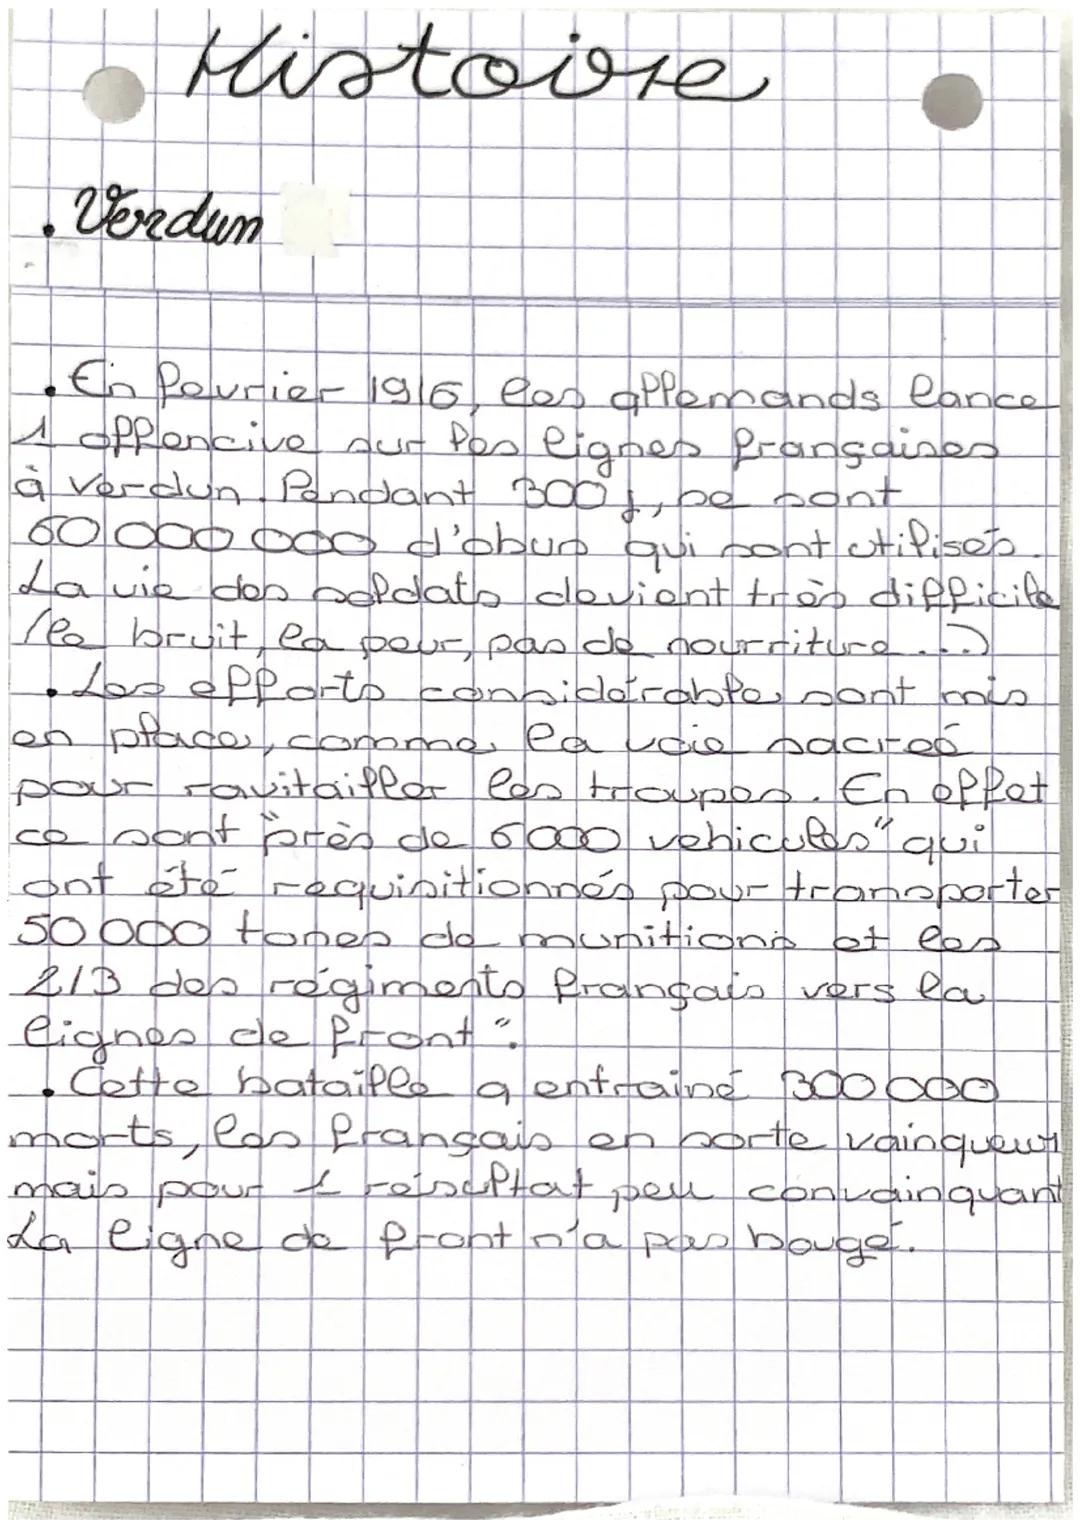 Histoire
. Verdun
. En fevrier 1916, les allemands lance
1 offencive sur les lignes françaises
à verdun. Pendant 300 j, se sont
60 000 000 d'obus qui sont utilisés.
La vie des soldats devient très difficile
(le bruit, la peur, pas de nourriture...)
. Les efforts considérable sont mis
en place, comme la voie sacreé
pour ravitailler les troupes. En effet
ce sont "près de 6000 vehicules" qui
ont été requisitionnés pour transporter
50 000 tones de munitions et les
2/3 des régiments français vers la
lignes de front".
. Cette bataille a entrainé 300 000
morts, les français en sorte vainqueur
mais pour 1 résultat peu convainquant
La ligne de front n'a pas bougé.